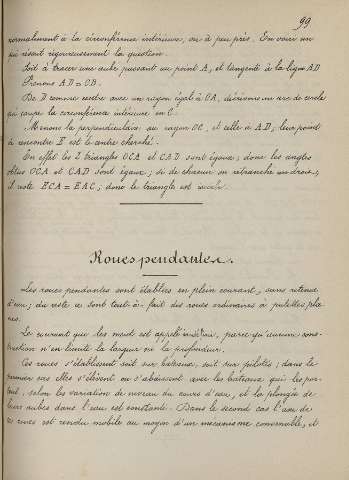 99
normalement à la circonférence intérieure, ou à peu près. En voici un
qui résout rigoureusement la question.
Soit à tracer une aube passant au point A, et tangente à la ligne AD
Prenons AD = OB.
De D comme centre avec un rayon égal à OA, décrivons un arc de cercle
qui coupe la circonférence intérieure en C.
Menons la perpendiculaire au rayon OC, et celle à AD; leur point
de rencontre E est le centre cherché.
En effet les 2 triangles OCA et CAD sont égaux; donc les angles
OCA et CAD sont égaux; si de chacun on retranche un droit,
il reste ECA = EAC; donc le triangle est isocèle.
Roues pendantes.
Les roues pendantes sont établies en plein courant, sans retenue
d'eau; du reste ce sont tout-à-fait des roues ordinaires à palettes pla-
nes.
Le courant qui les meut est appelé indéfini, parce qu'aucune cons-
truction n'en limite la largeur ni la profondeur.
Ces roues s'établissent soit sur bateaux, soit sur pilotis; dans le
premier cas elles s'élèvent ou s'abaissent avec les bateaux qui les por-
tent, selon les variations de niveau du cours d'eau, et la plongée de
leurs aubes dans l'eau est constante. Dans le second cas l'axe de
ces roues est rendu mobile au moyen d'un mécanisme convenable, et